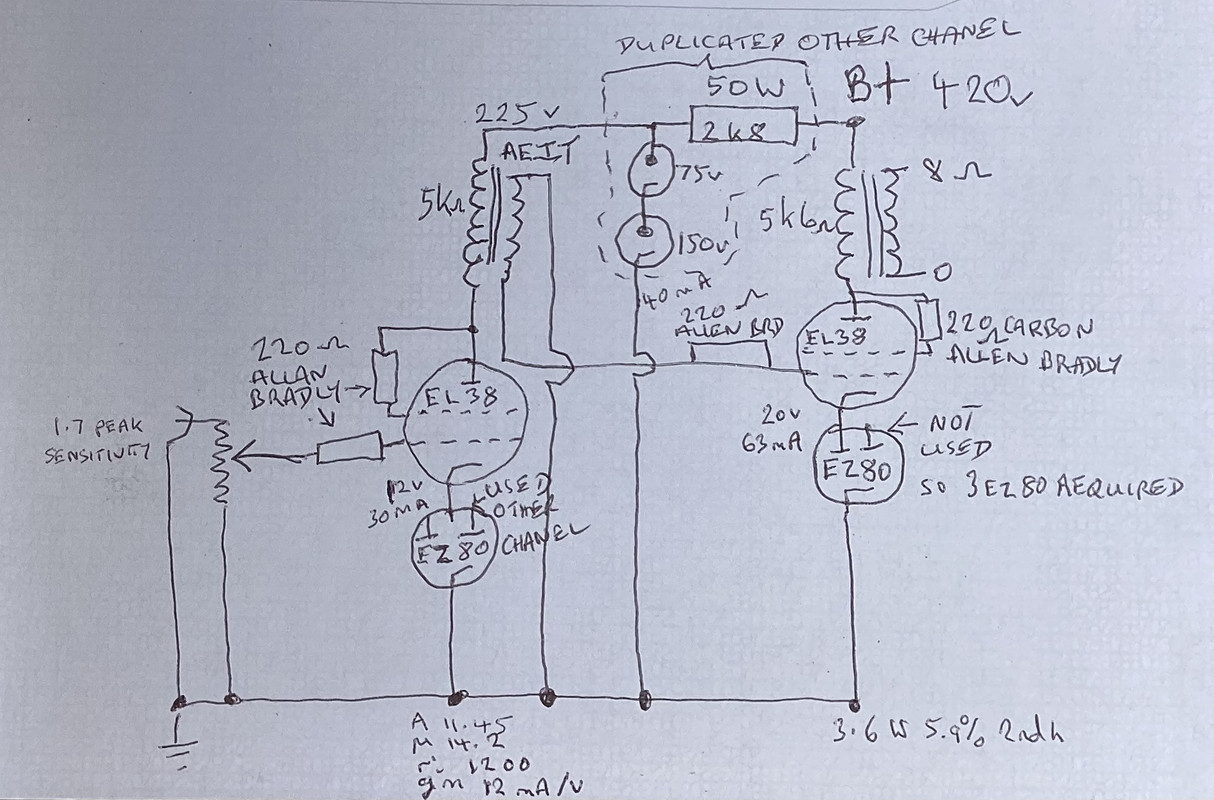 DUPLICATED OTHER CHANEL
50W
B+ 420v
225v
2k8
AEIT
75v
8 Ω
5kΩ
5k6Ω
150v
0
40mA
220 Ω
ALLEN BRD
220Ω CARBON
ALLEN BRADLY
EL38
220 Ω
ALLAN
BRADLY
EL38
1.7 PEAK
SENSITIVITY
20v
63mA
NOT
USED
EZ80
SO 3EZ80 AEQUIRED
12v
30MA
USED
OTHER
CHANEL
EZ80
A 11.45
M 14.2
ri 1200
gm 12 mA/V
3.6W 5.9% 2ndh